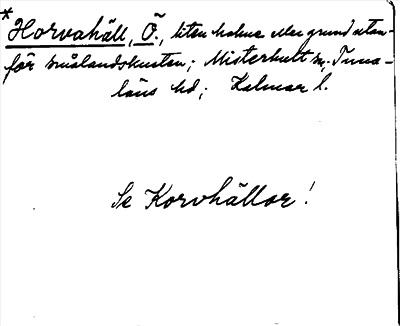 *Horvahäll, Ö., liten holme eller grund utan-
för smålandskusten; Misterhult sn, Tuna-
läns hd; Kalmar l.
Se Korvhällor!